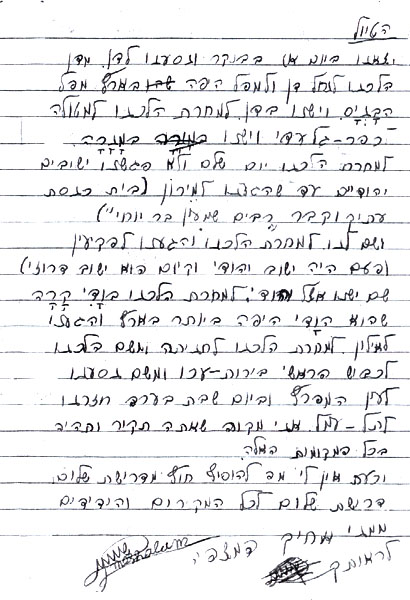 הטיול
יצאנו ביום א׳ בבוקר ונסענו לדן. מדן
הלכנו לנחל דן ולמפל היפה בארץ מפל
הבניס וישנו בדן. למחרת הלכנו למטולה
כפר-גלעדי וישנו במערה
למחרת הלכנו יום שלם ולא פגשנו ישובים
יהודיים עד שהגענו למירון (בית כנסת
עתיק וקבר רבים שמעון בר יוחיי)
ושם לנו למחרת הלכנו והגענו לפקיעין
(פעם היה ישוב יהודי וקיום הוא ישוב דרוזי)
שם ישנו אצל יהודי, למחרת הלכנו בודי קרה
שהוא הודי היפה ביותר בארץ והגענו
לאילון. למחרת הלכנו לחניתה ומשם הלכנו
לכביש הראשי ביירות-עכו ומשם נסענו
לעין המפרץ וביום שבת בערב חזרנו
לתל-עמל. אני מקוה שאתה תקיר ותהיה
בכל המקומות האלה.
וכעת אין לי מה להוסיף חוץ מדרישת שלום.
דרישת שלום לכל המקרום והידידים
ממני אחיך המצפה
לראותך